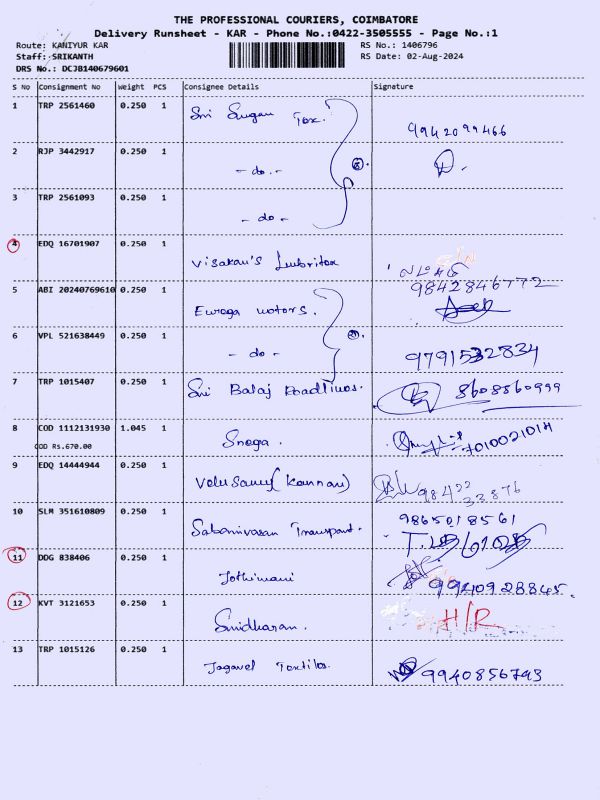 THE PROFESSIONAL COURIERS, COIMBATORE
Delivery Runsheet - KAR - Phone No.:0422-3505555 - Page No.:1
Route: KANIYUR KAR RS No.: 1406796
Staff: SRIKANTH RS Date: 02-Aug-2024
DRS No.: DCJB140679601
S No Consignment No Weight PCS Consignee Details Signature
1 TRP 2561460 0.250 1 Sri Sugan Tex. 9942099466
2 RJP 3442917 0.250 1 - do. -
3 TRP 2561093 0.250 1 - do -
4 EDQ 16701907 0.250 1 Visakan's Lubritex 9842846772
5 ABI 20240769610 0.250 1 Euroga motors.
6 VPL 521638449 0.250 1 - do - 9791532834
7 TRP 1015407 0.250 1 Sri Balaj Roadlines. 8608560999
8 COD 1112131930 1.045 1 Snega. 7010021014
COD Rs.670.00
9 EDQ 14444944 0.250 1 Velusamy (Kannan) 9842233876
10 SLM 351610809 0.250 1 Sabarivasan Transport. 9865018561
11 DDG 838406 0.250 1 Jothimani 9940928845.
12 KVT 3121653 0.250 1 Sridharan. H/R
13 TRP 1015126 0.250 1 Jagavel Textiles. 9940856793